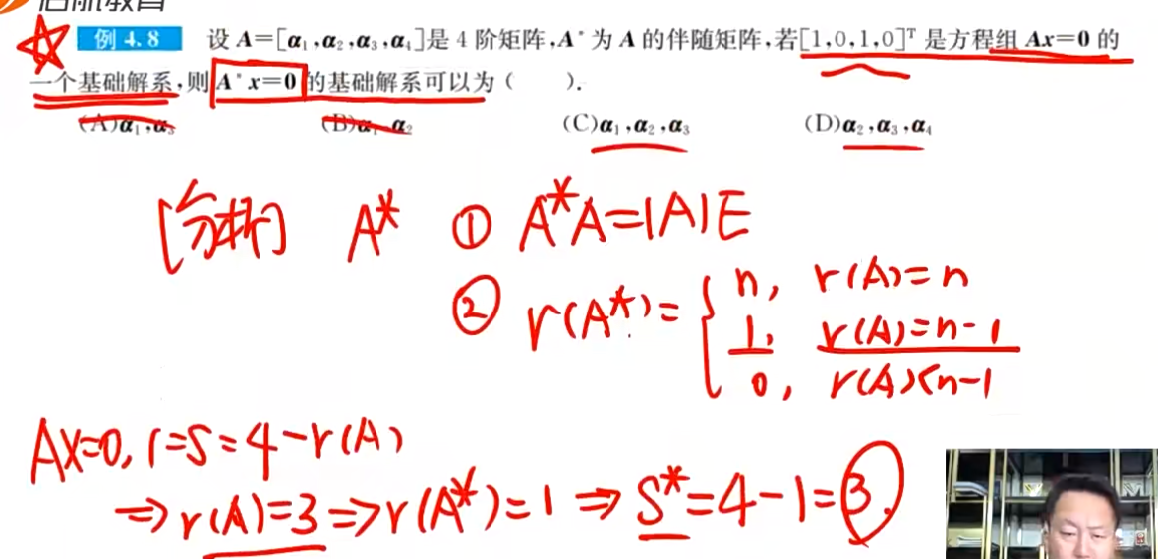 启航教育
例 4.8 设 A=[α₁,α₂,α₃,α₄]是 4 阶矩阵,A* 为 A 的伴随矩阵,若[1,0,1,0]ᵀ 是方程组 Ax=0 的
一个基础解系,则 A* x=0 的基础解系可以为( ).
(A)α₁,α₃ (B)α₁,α₂ (C)α₁,α₂,α₃ (D)α₂,α₃,α₄
[分析] A* ① A*A=|A|E
② r(A*)= { n, r(A)=n
1, r(A)=n-1
0, r(A)<n-1
AX=0, 1=S=4-r(A)
⇒r(A)=3⇒r(A*)=1⇒S*=4-1=3.